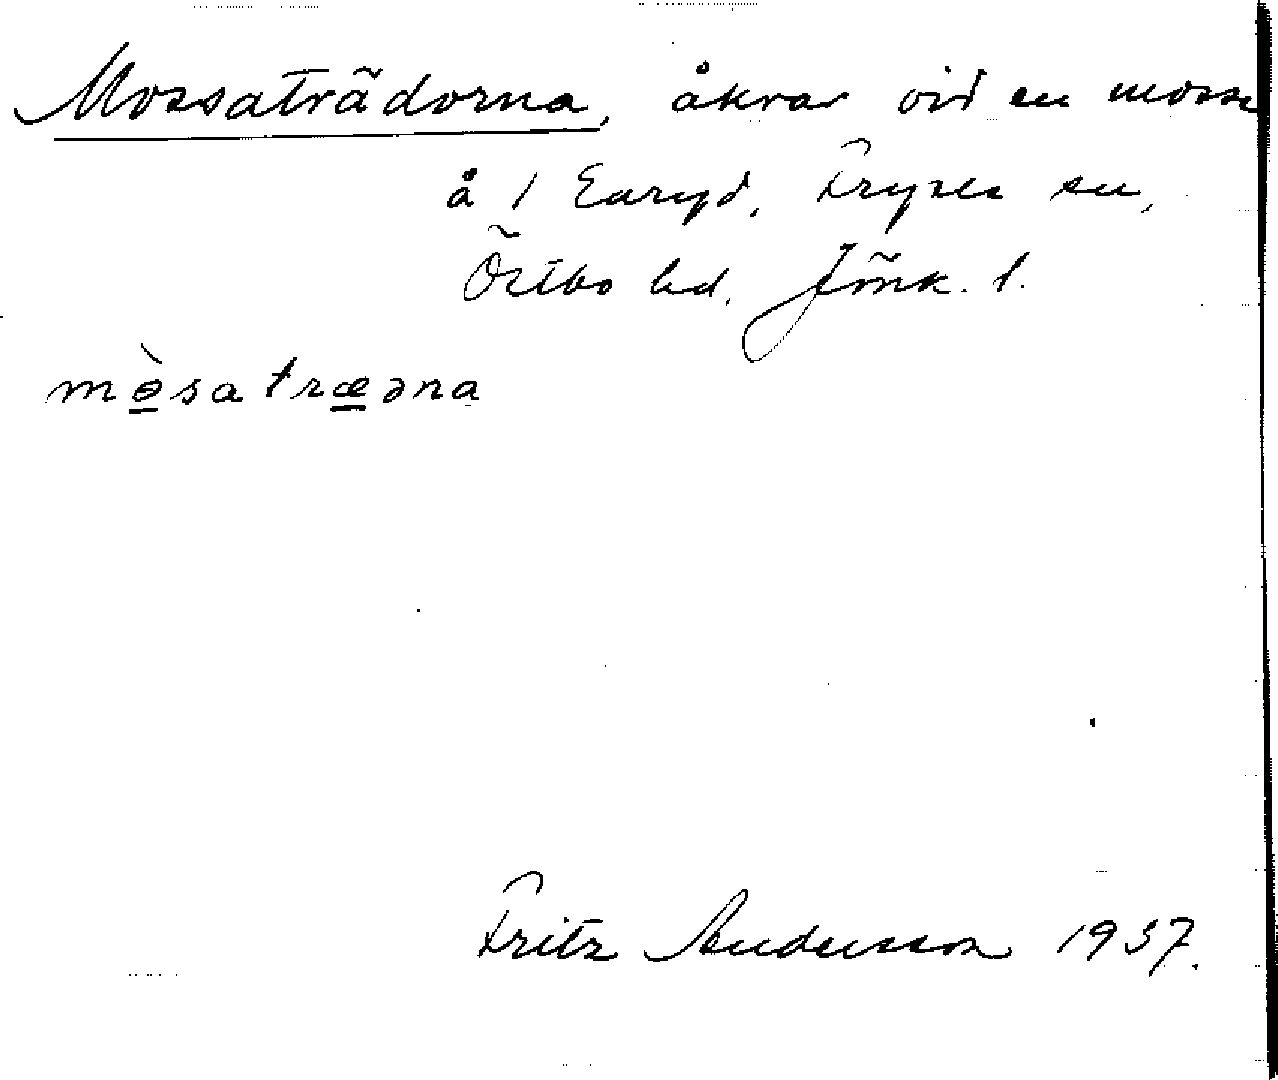 Mossaträdorna, åkrar vid en mosse
å 1 Earyd, Fryele sn,
Östbo hd. Jönk. l.
mòsatræəna
Fritz Andersson 1937.